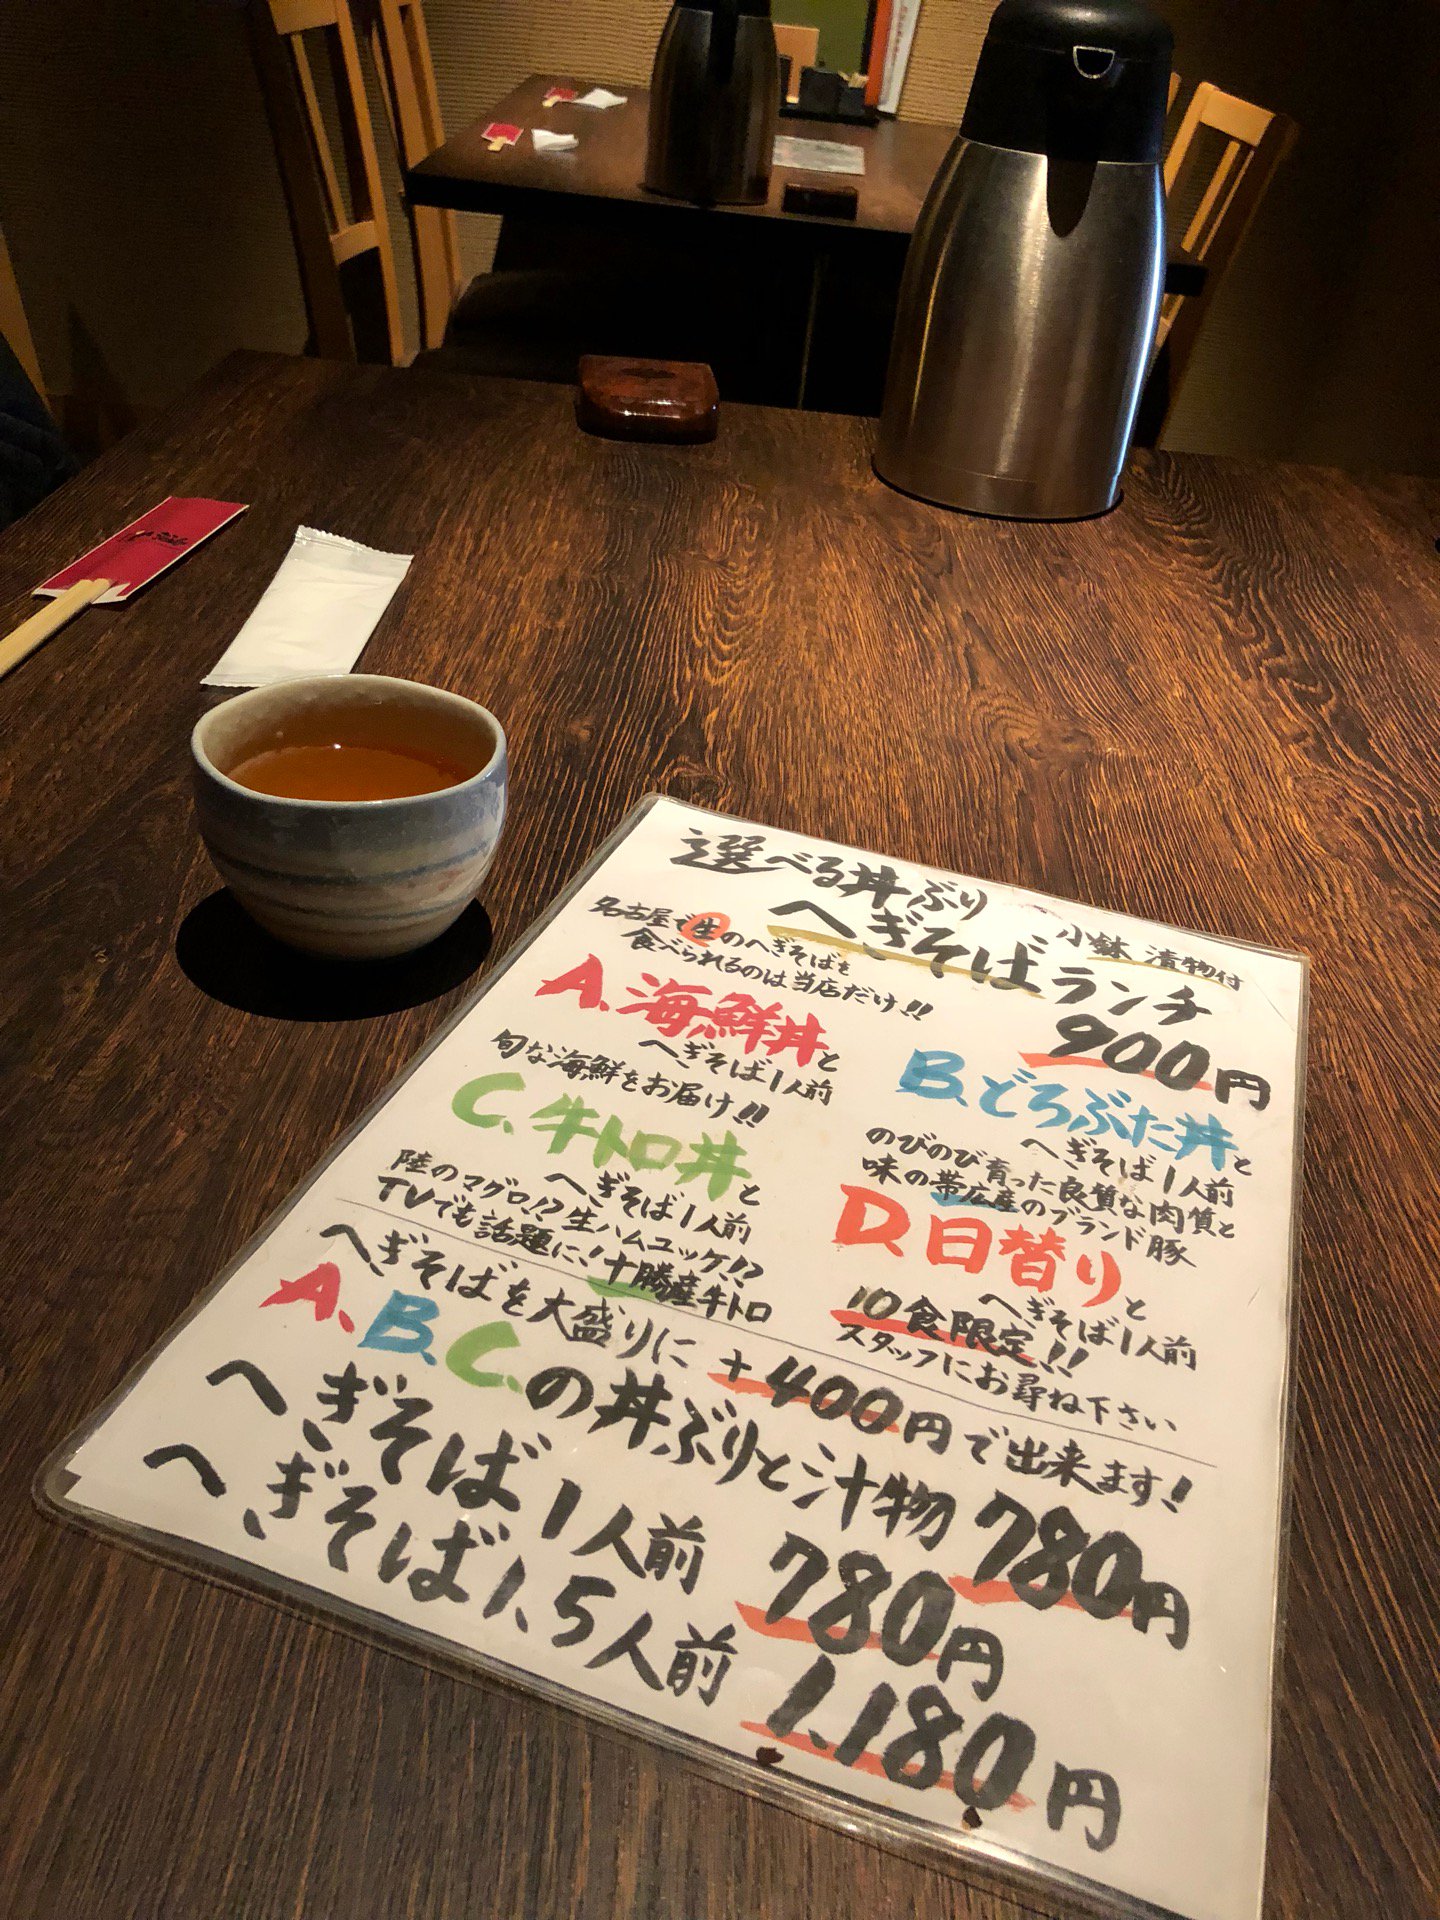 選べる丼ぶり
へぎそばランチ
小鉢 漬物付
900円
名古屋で生のへぎそばを
食べられるのは当店だけ!!
A.海鮮丼と
へぎそば1人前
旬な海鮮をお届け!!
B.どろぶた丼と
へぎそば1人前
のびのび育った良質な肉質と
味の帯広産のブランド豚
C.牛トロ丼と
へぎそば1人前
陸のマグロ!?生ハムユッケ!?
TVでも話題に!十勝産牛トロ
D.日替りと
へぎそば1人前
10食限定!!
スタッフにお尋ね下さい
へぎそばを大盛りに+400円で出来ます!
A.B.C.の丼ぶりと汁物 780円
へぎそば1人前 780円
へぎそば1.5人前 1.180円